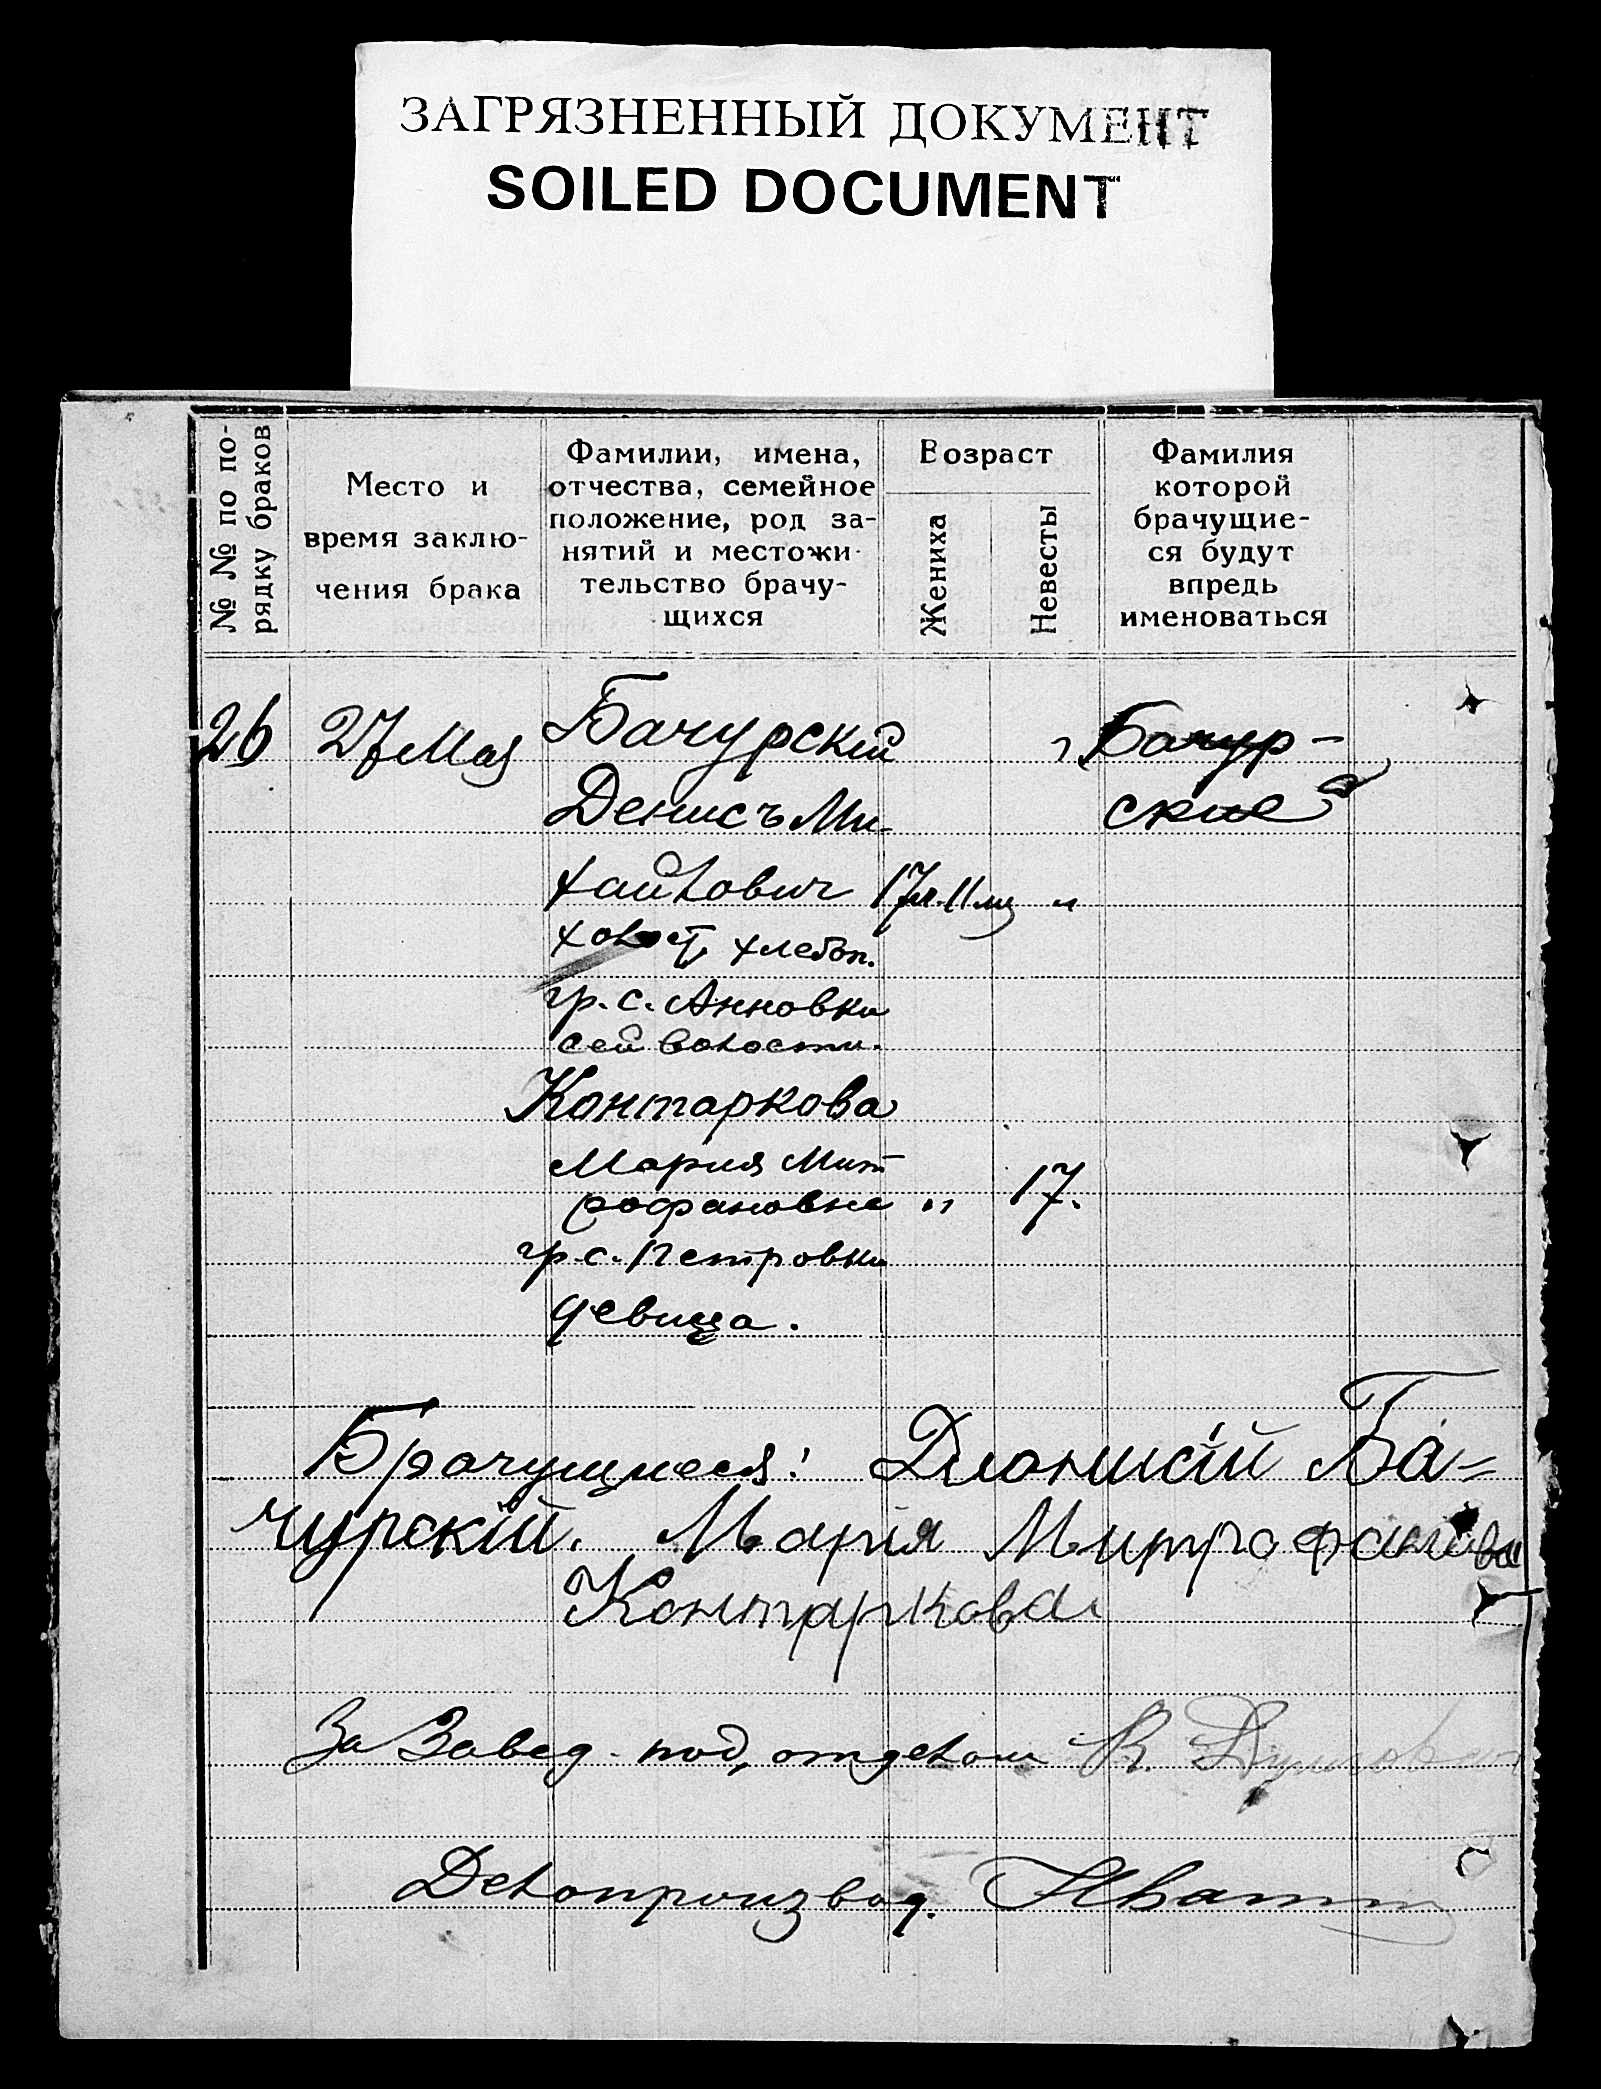 ЗАГРЯЗНЕННЫЙ ДОКУМЕНТ
SOILED DOCUMENT
№ № по по-
рядку браков
Место и
время заклю-
чения брака
Фамилии, имена,
отчества, семейное
положение, род за-
нятий и местожи-
тельство брачу-
щихся
Возраст
Жениха
Невесты
Фамилия
которой
брачущие-
ся будут
впредь
именоваться
26 27 Мая Бачурскій " Бачур-
Денисъ Ми- ские
хайлович 17 л. 11 мц "
холост, хлебоп.
гр. с. Анновки
сей волости.
Контаркова
Мария Мит
рофановне " 17.
гр. с. Петровки
девица.
Брачущиеся: Дионисій Ба=
чурскій. Марія Митрофанова
Контаркова
За Завед. под, отделом
Делопроизвод.